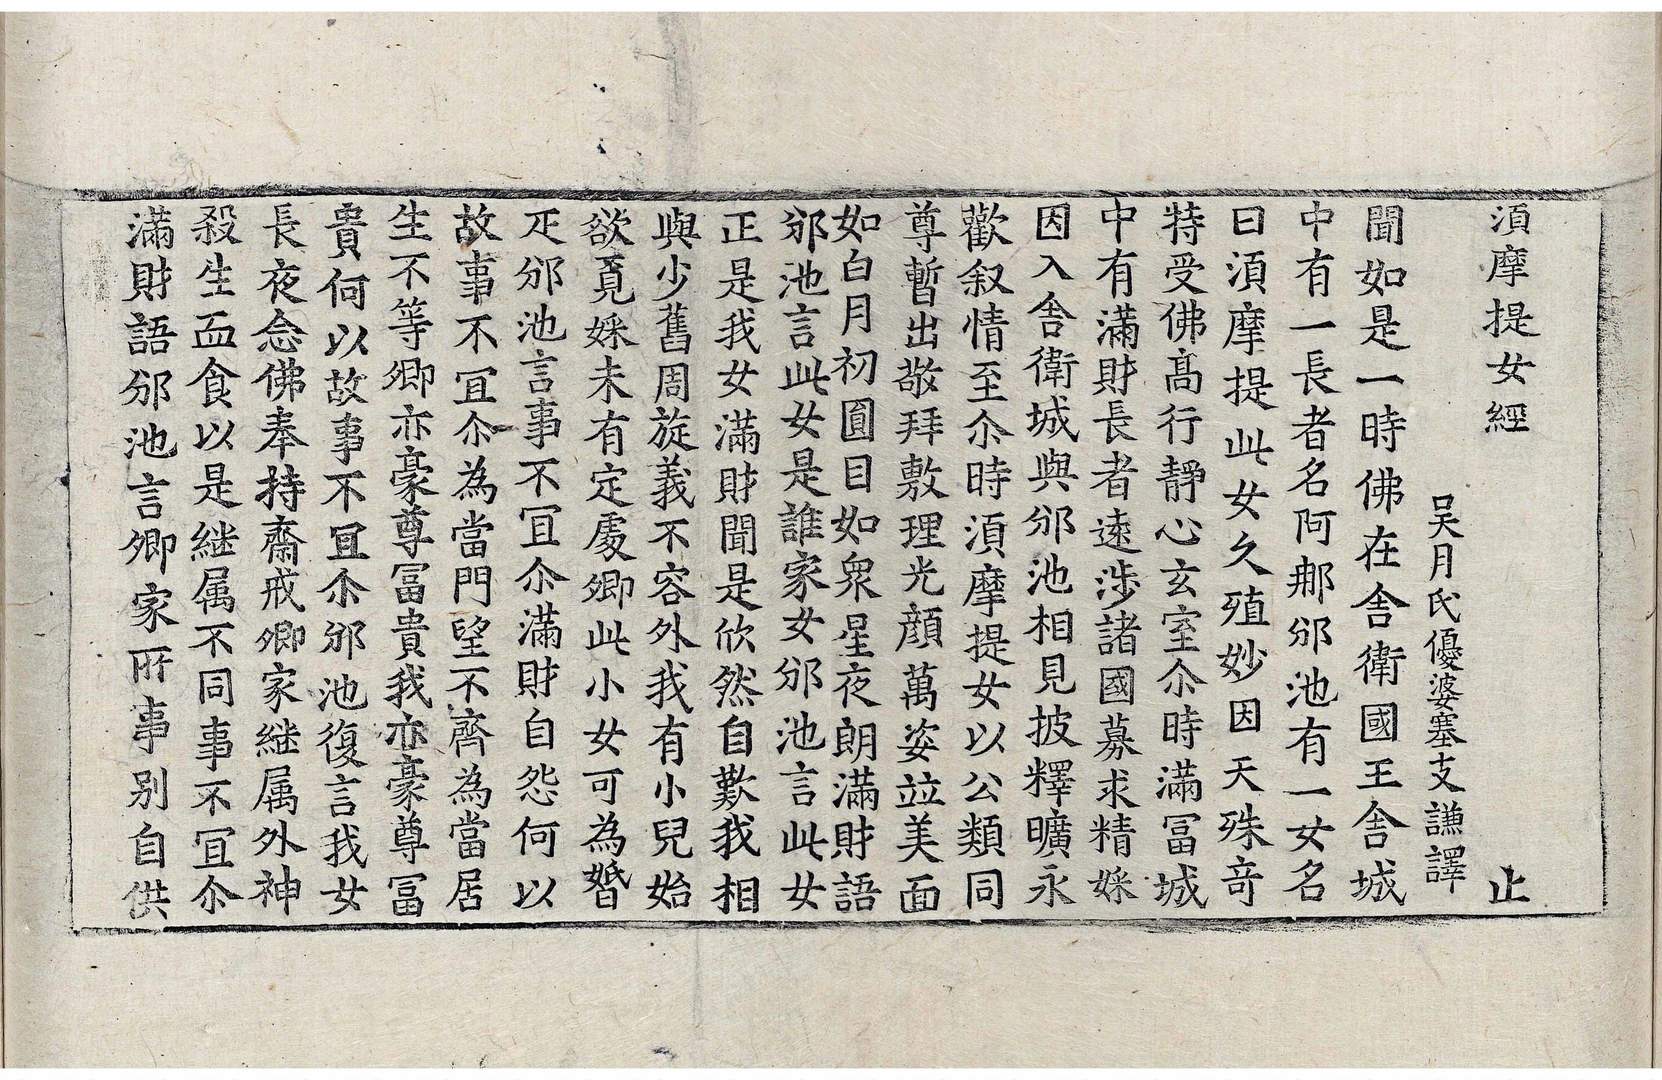 須摩提女經 止
吳月氏優婆塞支謙譯
聞如是一時佛在舍衛國王舍城
中有一長者名阿那邠池有一女名
曰須摩提此女久殖妙因天殊奇
特受佛髙行静心玄室尒時滿冨城
中有滿財長者逺涉諸國募求精婇
因入舍衛城與邠池相見披釋曠永
歡叙情至尒時須摩提女以公類同
尊暫出敬拜敷理光顔萬姿竝美面
如白月初圓目如衆星夜朗滿財語
邠池言此女是誰家女邠池言此女
正是我女滿財聞是欣然自歎我相
與少舊周旋義不容外我有小兒始
欲覓婇未有定處卿此小女可為婚
疋邠池言事不冝尒滿財自怨何以
故事不冝尒為當門望不齊為當居
生不等卿亦豪尊冨貴我亦豪尊冨
貴何以故事不冝尒邠池復言我女
長夜念佛奉持齋戒卿家継属外神
殺生血食以是継属不同事不冝尒
滿財語邠池言卿家所事别自供